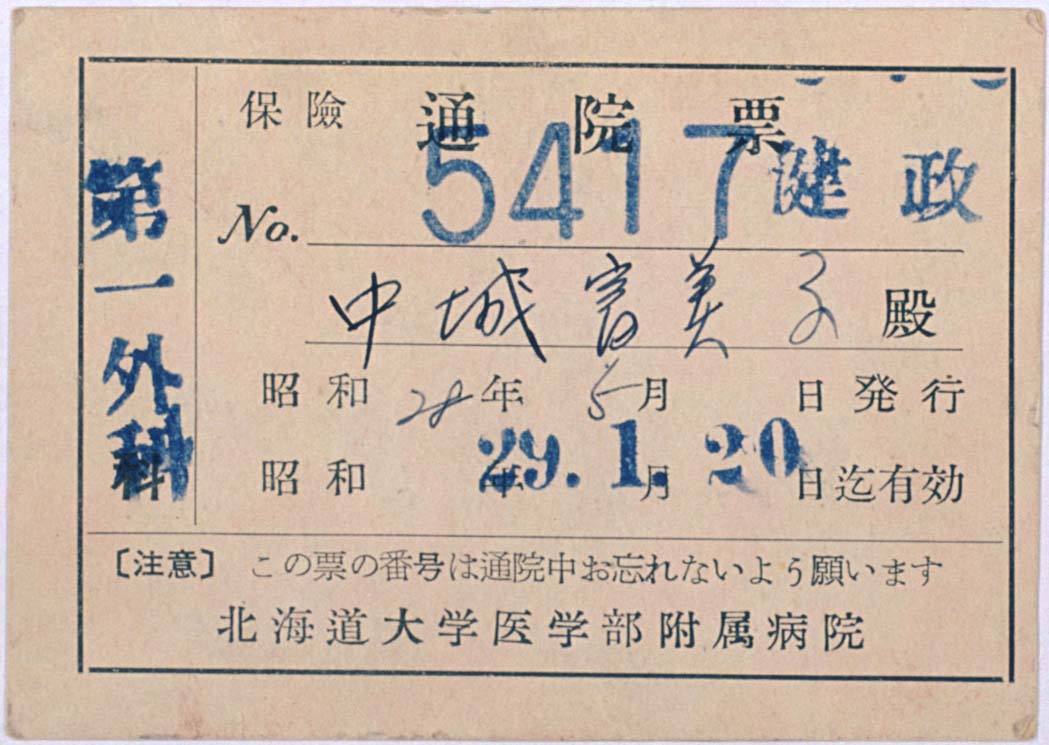 第一外科
保險 通院票
No. 5417 健 政
中城富美子 殿
昭和28年5月 日発行
昭和29.1.20年月日迄有効
〔注意〕 この票の番号は通院中お忘れないよう願います
北海道大学医学部附属病院